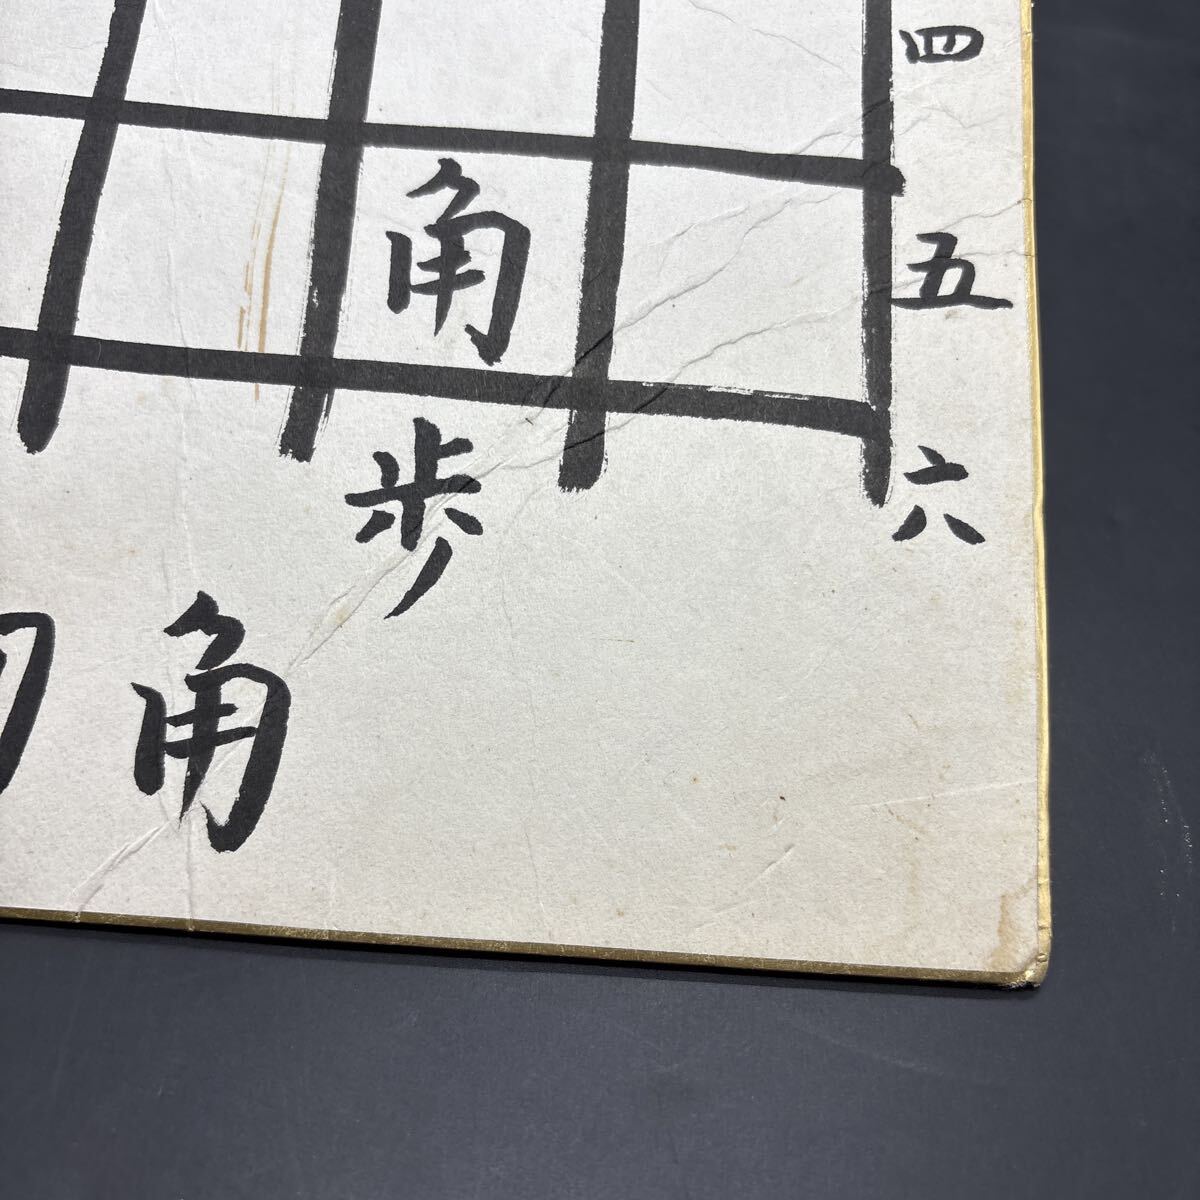 四
角 五
歩 六
角